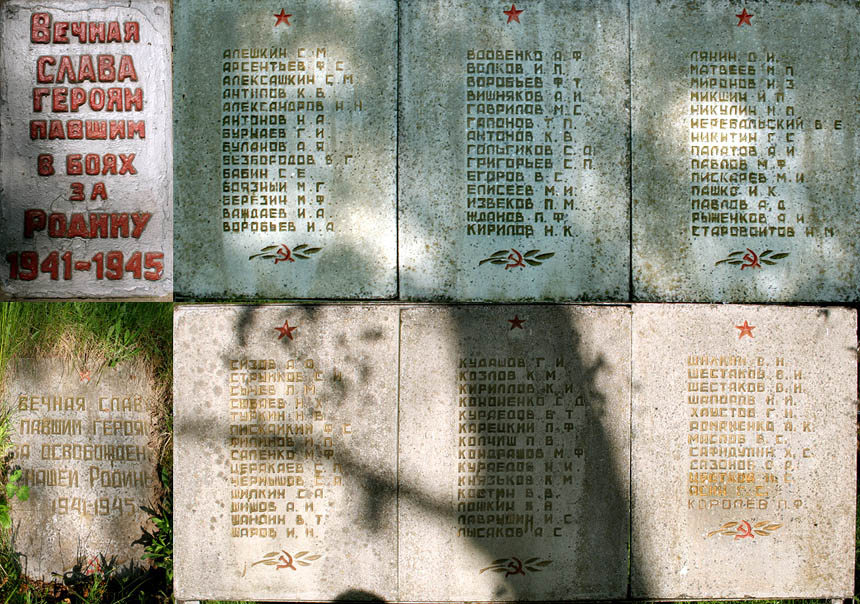 Вечная
слава
героям
павшим
в боях
за
Родину
1941-1945
АЛЕШКИН С М
АРСЕНТЬЕВ Ф С
АЛЕКСАШКИН С М
АНТИПОВ К В
АЛЕКСАНДРОВ Н Н
АНТОНОВ Н А
БУРНАЕВ Г И
БУЛАНОВ А Я
БЕЗБОРОДОВ В Г
БАБИН С Е
БОЯЗНЫЙ М Г
БЕРЁЗИН М Ф
ВАЖДАЕВ И А
ВОРОБЬЕВ И А
ВДОВЕНКО А Ф
ВОЛКОВ И П
ВОРОБЬЕВ Ф Т
ВИШНЯКОВ А И
ГАВРИЛОВ К С
ГАПОНОВ Т П
АНТОНОВ К В
ГОЛЬГИКОВ С Д
ГРИГОРЬЕВ С П
ЕГОРОВ В С
ЕЛИСЕЕВ М И
ИЗВЕКОВ П М
ЖДАНОВ П Ф
КИРИЛОВ Н К
ЛЯНИН О И
МАТВЕЕВ М П
МИРОНОВ И З
МИКШИН И П
НИКУЛИН Н П
НЕРЕВАЛЬСКИЙ В Е
НИКИТИН Г С
ПАЛАТОВ Я И
ПАВЛОВ М Ф
ПИСКАРЕВ М И
ПАШКО И К
ПАВЛОВ А Д
РЫЖЕНКОВ А И
СТАРОВОЙТОВ Н М
Вечная слава
павшим героя
за освобожден
нашей Родины
1941-1945
СИЗОВ А
СЫЧЕВ П
ПИСКАЙКИН Ф С
ФИЛИППОВ И П
САПЕНКО М Ф
ЦЕРАКАЕВ С
ЧЕРНЫШОВ С А
ШИЛКИН С А
ШИШОВ А И
ШАНДИН В Т
ШАРОВ И Н
КУДАШОВ Г И
КОЗЛОВ К М
КИРИЛЛОВ К И
КОНОНЕНКО С Д
КУРАЕДОВ В Т
КАРЕЦКИЙ П Ф
КОЛЧИШ П В
КОНДРАШОВ М Ф
КУРАЕДОВ Н И
КНЯЗЬКОВ К М
КОСТИН В В
ЛОШКИН В В
ЛАВРУШИН И С
ЛЫСАКОВ А С
ШЕСТАКОВ В И
ШЕСТАКОВ В И
ШАПОРОВ И И
ХЛУСТОВ Г Н
ДОМАНЕНКО П К
МИСЛОВ В С
САФИДУЛИН Х С
САЗОНОВ О Р
КОРОЛЕВ П Ф